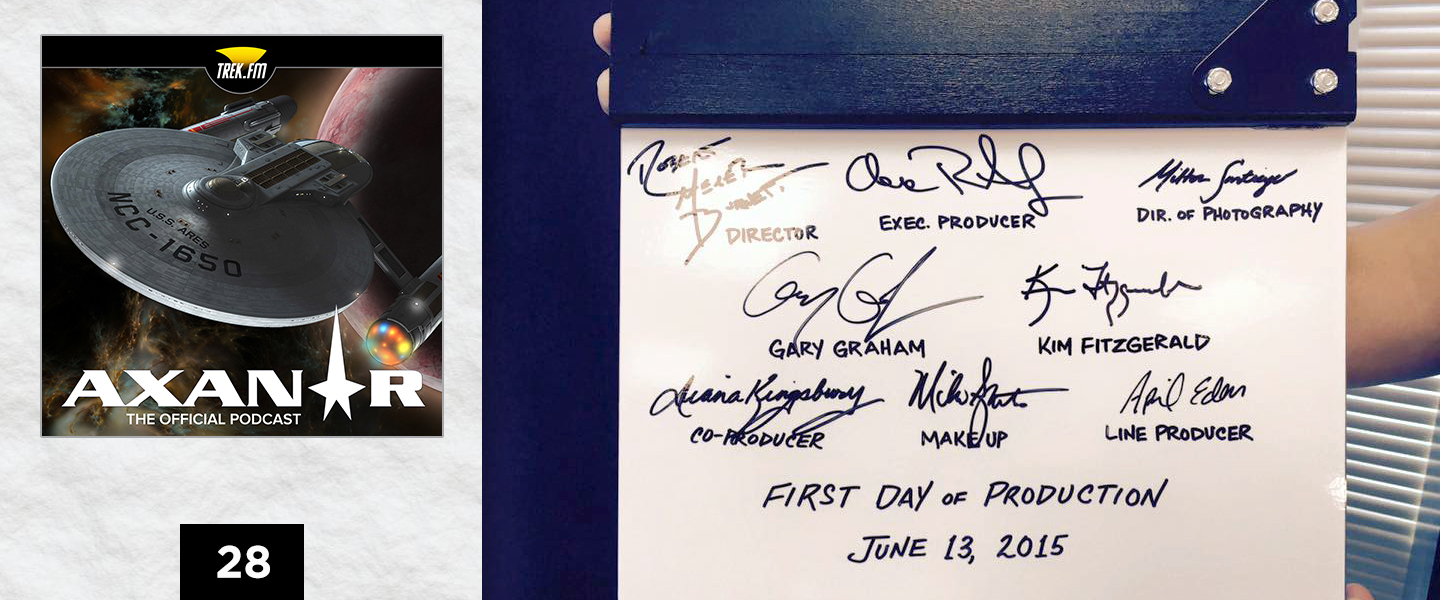 TREK.FM
U.S.S. ARES
NCC-1650
AXANAR
THE OFFICIAL PODCAST
28
ROBERT
MEYER
BURNETT
DIRECTOR
EXEC. PRODUCER
Milton Santiago
DIR. OF PHOTOGRAPHY
GARY GRAHAM
KIM FITZGERALD
Diana Kingsbury
CO-PRODUCER
MAKE UP
April Eden
LINE PRODUCER
FIRST DAY OF PRODUCTION
JUNE 13, 2015